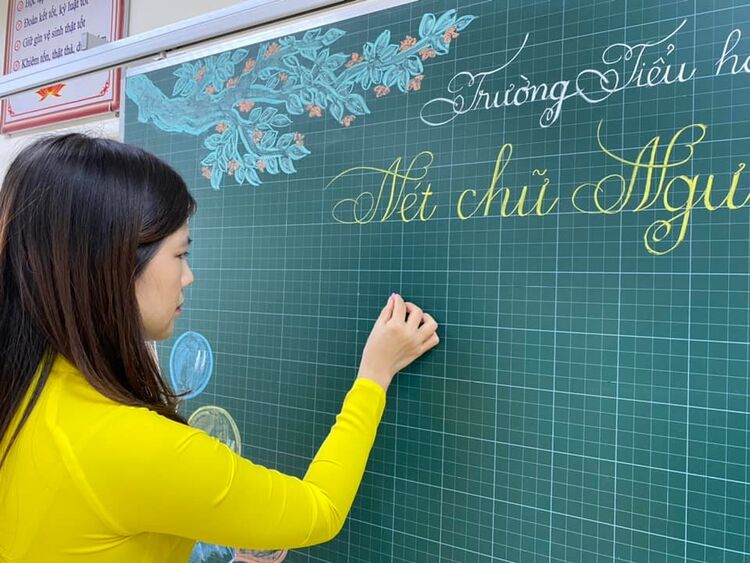 Đoàn kết tốt, kỷ luật tốt
Giữ gìn vệ sinh thật tốt
Khiêm tốn, thật thà,
Trường Tiểu
Nét chữ